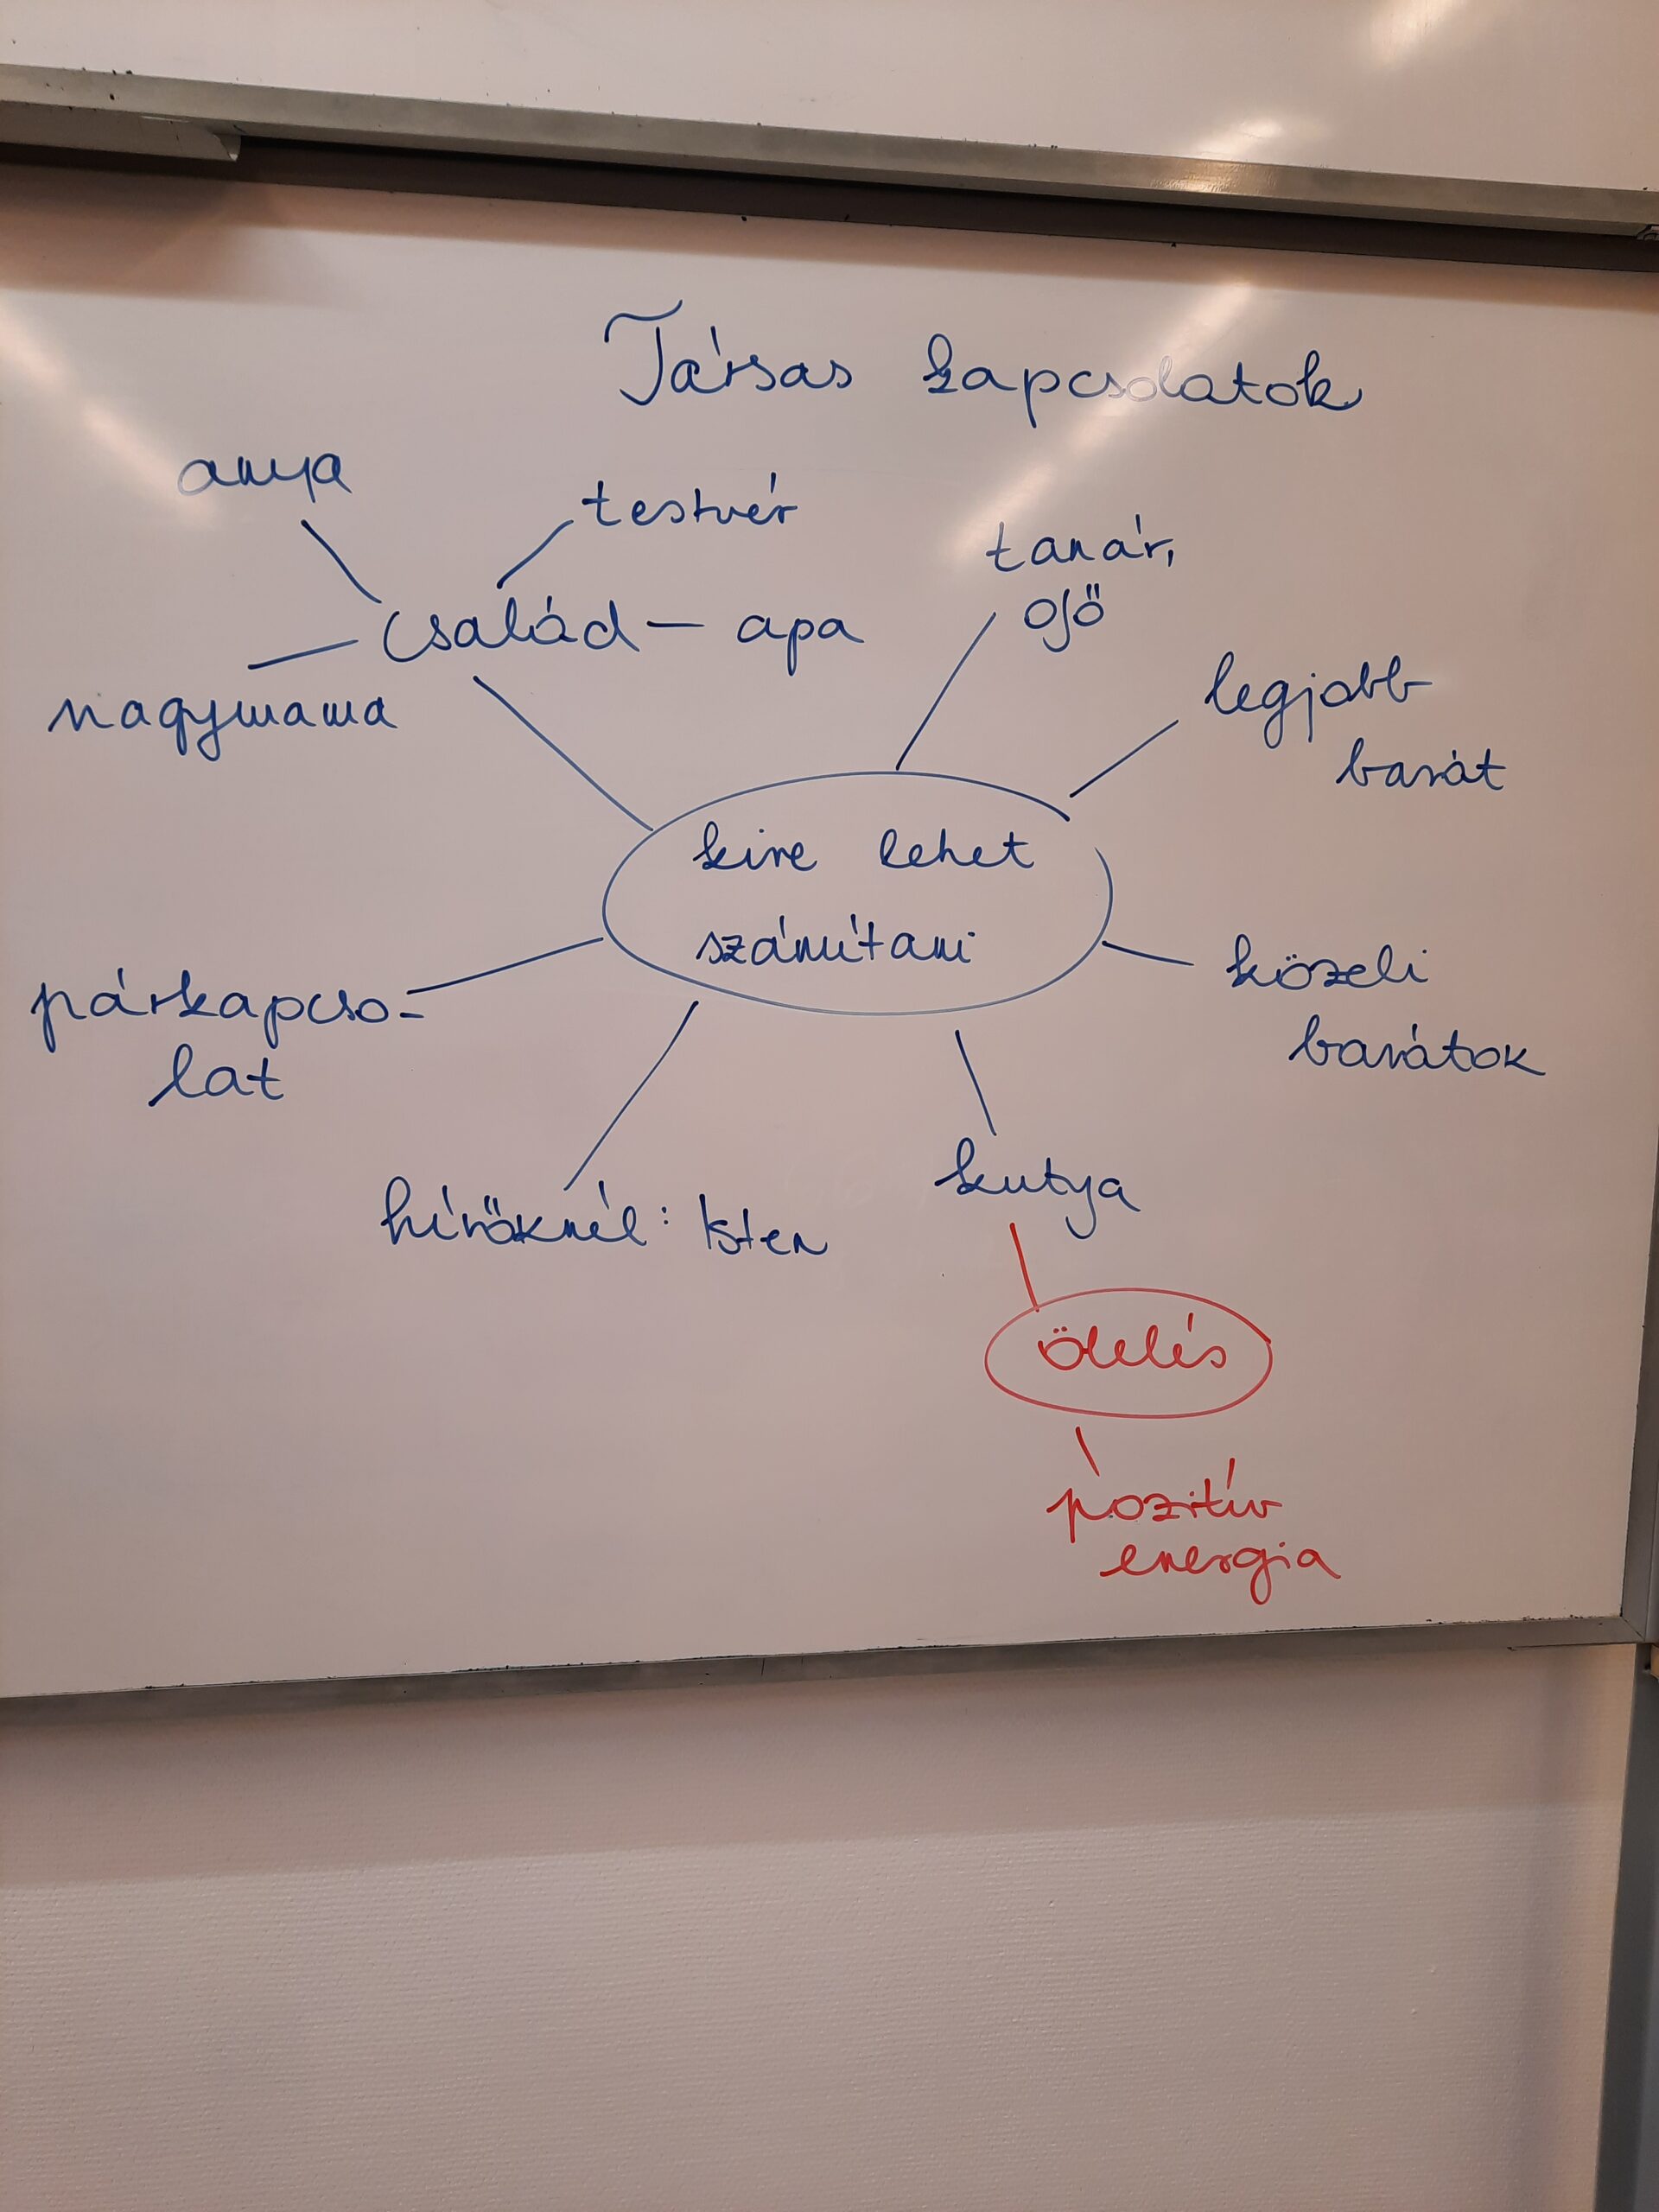 Társas kapcsolatok
anya
testvér
család – apa
nagymama
tanár,
ofő
legjobb
barát
kire lehet
számítani
párkapcso-
lat
közeli
barátok
hívőknél: Isten
kutya
ölelés
pozitív
energia